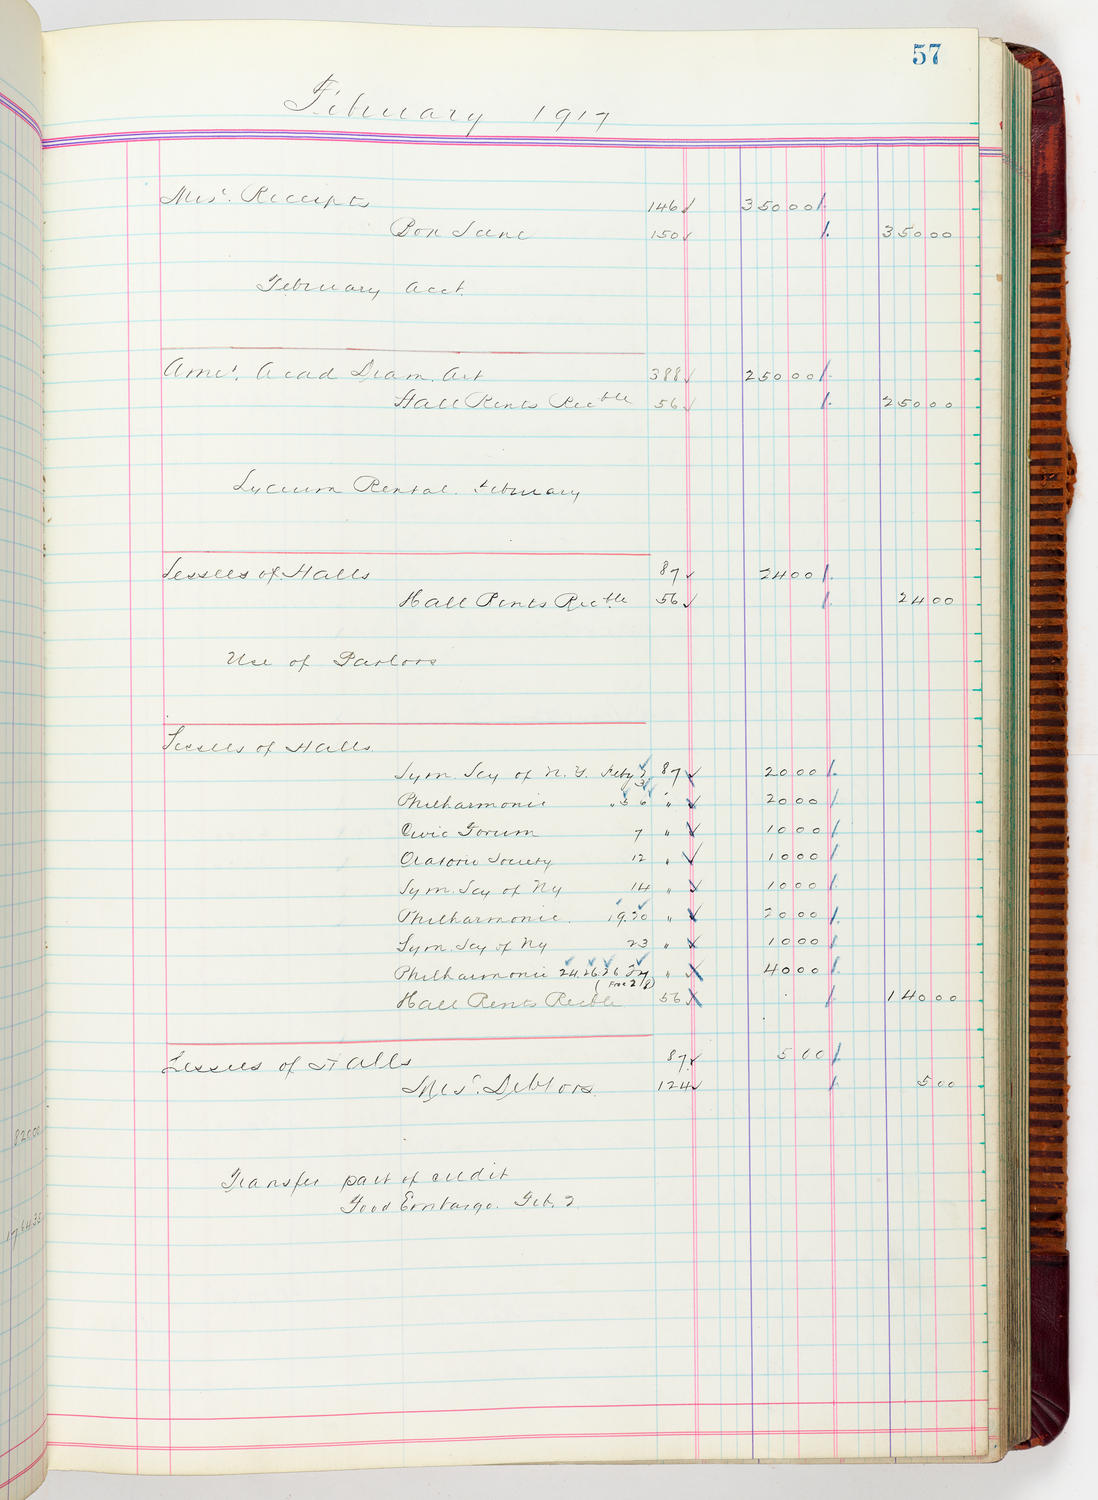 57
February 1917
Misc. Receipts 146 ✓ 350 00 /.
Bon Sanc 150 ✓ /. 350 00
February acct.
Amer. Acad Dram. Art 388 ✓ 250 00 /.
Hall Rents Recble 56 ✓ /. 250 00
Lyceum Rental. February
Lessees of Halls 87 ✓ 24 00 /.
Hall Rents Recble 56 ✓ /. 24 00
Use of Parlors
Lessees of Halls
Sym. Scy of N.Y. Feby 3 87 ✓ 20 00 /.
Philharmonic " 5 6 " ✓ 20 00 /.
Civic Forum 7 " ✓ 10 00 /.
Oratorio Society 12 " ✓ 10 00 /.
Sym. Scy of Ny 14 " ✓ 10 00 /.
Philharmonic. 19. 20 " ✓ 20 00 /.
Sym. Scy of Ny 23 " ✓ 10 00 /.
Philharmonic 24. 26. 26 27 " ✓ 40 00 /.
(Free 2/8)
Hall Rents Recble 56 ✓ /. 140 00
Lessees of Halls 87 ✓ 5 00 /.
Misc. Debtors 124 ✓ /. 5 00
Transfer part of credit
Food Embargo. Feb. 2
8200